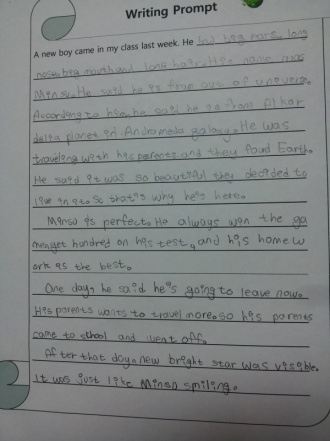 Writing Prompt
A new boy came in my class last week. He had big ears, long
nose, big mouth and long hair. His name was
Minsu. He said he is from out of universe.
According to him, he said he is from Alkar
delta planet in Andromeda galaxy. He was
traveling with his parents and they foud Earth.
He said it was so beautiful they decided to
live in it. So that's why he's here.
Minsu is perfect. He always won the ga
me, get hundred on his test, and his homew
ork is the best.
One day, he said he's going to leave now.
His parents wants to travel more. so his parents
came to school and went off.
After that day, new bright star was visible.
It was just like Minsu smiling.